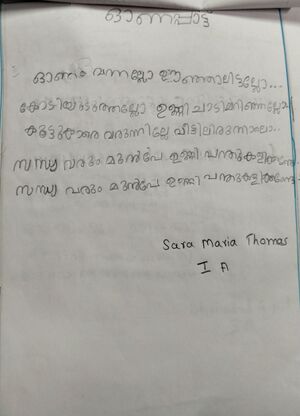 ഓണപ്പാട്ട്
ഓണം വന്നല്ലോ ഊഞ്ഞാലിട്ടല്ലോ...
കോടിയുടുത്തല്ലോ ഉണ്ണി ചാടിമറിഞ്ഞല്ലോ
കൂട്ടുകാരു വരുന്നില്ലേ വീട്ടിലിരുന്നാലോ..
സന്ധ്യ വരും മുൻപേ ഉണ്ണി പന്തുകളിക്കണ്ടേ
സന്ധ്യ വരും മുൻപേ ഉണ്ണി പന്തുകളിക്കണ്ടേ
Sara Maria Thomas
I A